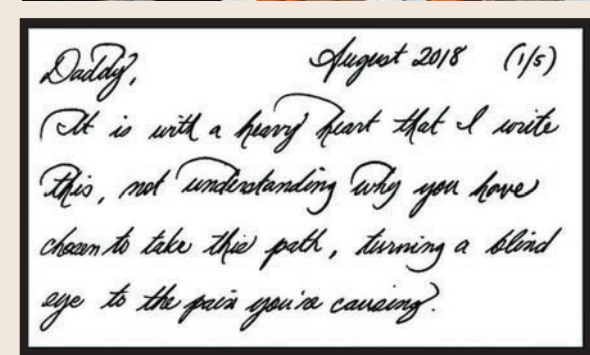 Daddy, August 2018 (1/5)
It is with a heavy heart that I write
this, not understanding why you have
chosen to take this path, turning a blind
eye to the pain you're causing.